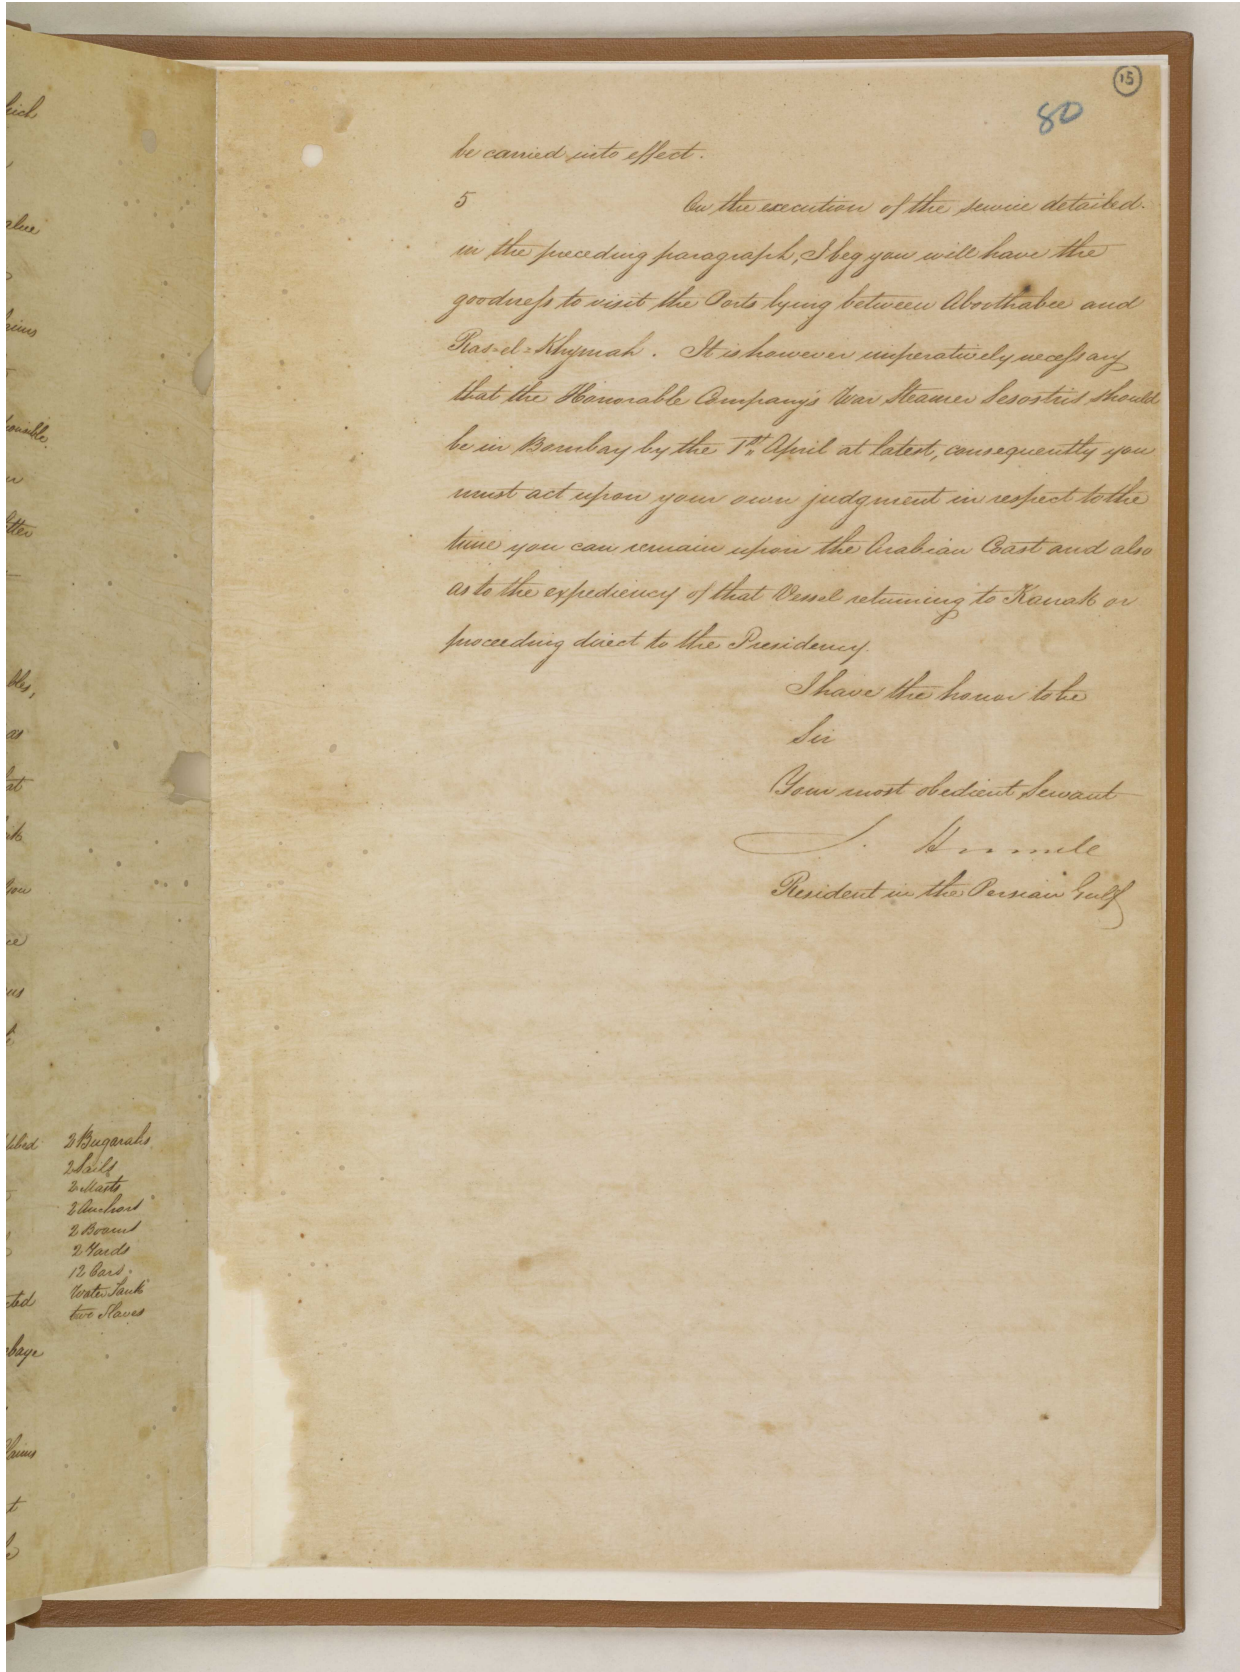 15
80
be carried into effect.
5 On the execution of the service detailed
in the preceding paragraph, I beg you will have the
goodness to visit the Ports lying between Aboothabee and
Ras-el-Khymah. It is however imperatively necessary
that the Honorable Company's War Steamer Sesostris should
be in Bombay by the 1st April at latest, consequently you
must act upon your own judgment in respect to the
time you can remain upon the Arabian Coast and also
as to the expediency of that Vessel returning to Karrak or
proceeding direct to the Presidency.
I have the honor to be
Sir
Your most obedient Servant
Resident in the Persian Gulf
2 Bugarahs
2 Sails
2 Masts
2 Anchors
2
2 Yards
12 Oars
Water Tank
two Slaves